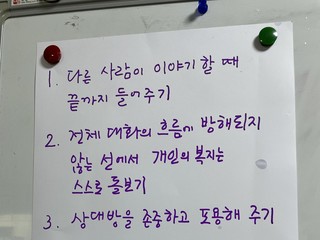 1. 다른 사람이 이야기 할 때
끝까지 들어주기
2. 전체 대화의 흐름에 방해되지
않는 선에서 개인의 복지는
스스로 돌보기
3. 상대방을 존중하고 포용해 주기